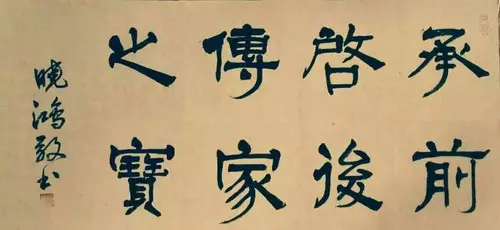 承前
啓後
傳家
之寶
曉鴻敬书